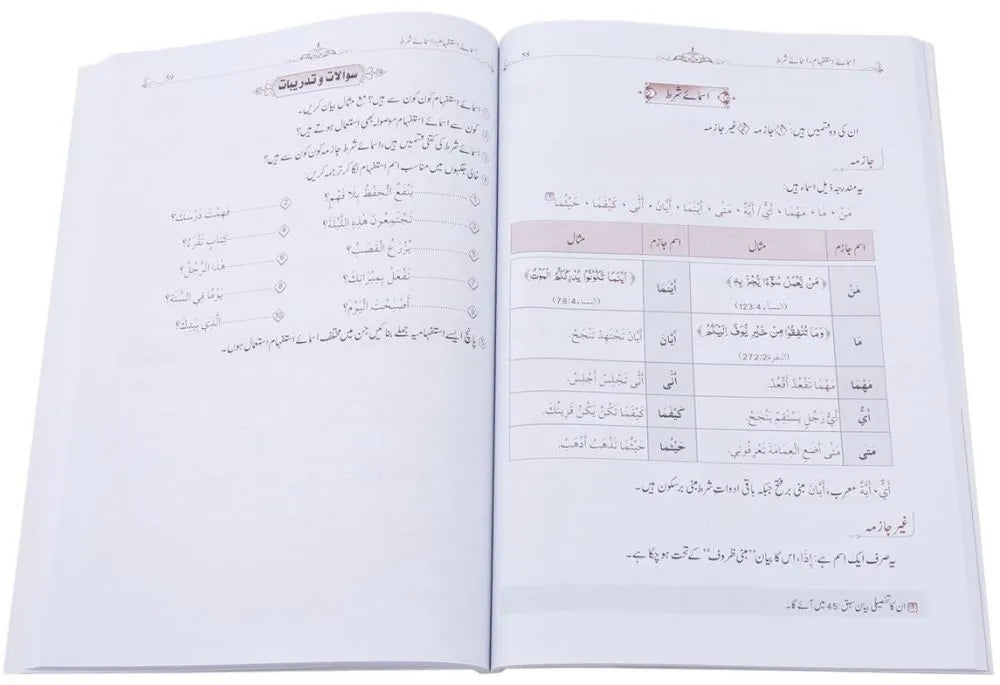 اسمائے استفہام، اسمائے شرط
58
اسمائے شرط
ان کی دو قسمیں ہیں: 1 جازمہ 2 غیر جازمہ
جازمہ
یہ مندرجہ ذیل اسماء ہیں:
مَنْ ، مَا ، مَهْمَا ، أَيُّ/ أَيَّةُ ، مَتٰی ، أَيْنَمَا ، أَيَّانَ ، أَنّٰی ، كَيْفَمَا ، حَيْثُمَا
اسم جازم مثال اسم جازم مثال
مَنْ ﴿مَنْ يَّعْمَلْ سُوْٓءًا يُّجْزَ بِهٖ﴾ (النساء 123:4) أَيْنَمَا ﴿اَيْنَمَا تَكُوْنُوْا يُدْرِكْكُّمُ الْمَوْتُ﴾ (النساء 78:4)
مَا ﴿وَمَا تُنْفِقُوْا مِنْ خَيْرٍ يُّوَفَّ اِلَيْكُمْ﴾ (البقرة 272:2) أَيَّانَ أَيَّانَ تَجْتَهِدْ تَنْجَحْ.
مَهْمَا مَهْمَا تَقْعُدْ أَقْعُدْ. أَنّٰی أَنّٰی تَجْلِسْ أَجْلِسْ.
أَيُّ أَيُّ رَجُلٍ يَسْتَقِمْ يَنْجَحْ. كَيْفَمَا كَيْفَمَا تَكُنْ يَكُنْ قَرِينُكَ.
مَتٰی مَتٰی أَضَعِ الْعِمَامَةَ تَعْرِفُونِي. حَيْثُمَا حَيْثُمَا تَذْهَبْ أَذْهَبْ.
أَيٌّ، أَيَّةٌ معرب، أَيَّانَ مبنی بر فتح جبکہ باقی ادوات شرط مبنی بر سکون ہیں۔
غیر جازمہ
یہ صرف ایک اسم ہے: إِذَا، اس کا بیان ”مبنی ظروف“ کے تحت ہو چکا ہے۔
ان کا تفصیلی بیان سبق: 45 میں آئے گا۔
اسمائے استفہام، اسمائے شرط
59
سوالات و تدریبات
1 اسمائے استفہام کون کون سے ہیں؟ مع مثال بیان کریں۔
2 کون سے اسمائے استفہام موصولہ بھی استعمال ہوتے ہیں؟
3 اسمائے شرط کی کتنی قسمیں ہیں، اسمائے شرط جازمہ کون کون سے ہیں؟
4 خالی جگہوں میں مناسب اسم استفہام لگا کر ترجمہ کریں:
1 ............ يَنْفَعُ الْحِفْظُ بِلَا فَهْمٍ؟ 2 ............ فَهِمْتَ دَرْسَكَ؟
3 ............ تَجْتَمِعُونَ هٰذِهِ اللَّيْلَةَ؟ 4 ............ كِتَابٍ تَقْرَءُ؟
5 ............ يُزْرَعُ الْقَصَبُ؟ 6 ............ هٰذَا الرَّجُلُ؟
7 ............ تَفْعَلُ بِمِيرَاثِكَ؟ 8 ............ يَوْمًا فِي السَّنَةِ؟
9 ............ أَصْبَحْتَ الْيَوْمَ؟ 10 ............ الَّذِي بِيَدِكَ؟
5 پانچ ایسے استفہامیہ جملے بنائیں جن میں مختلف اسمائے استفہام استعمال ہوں۔